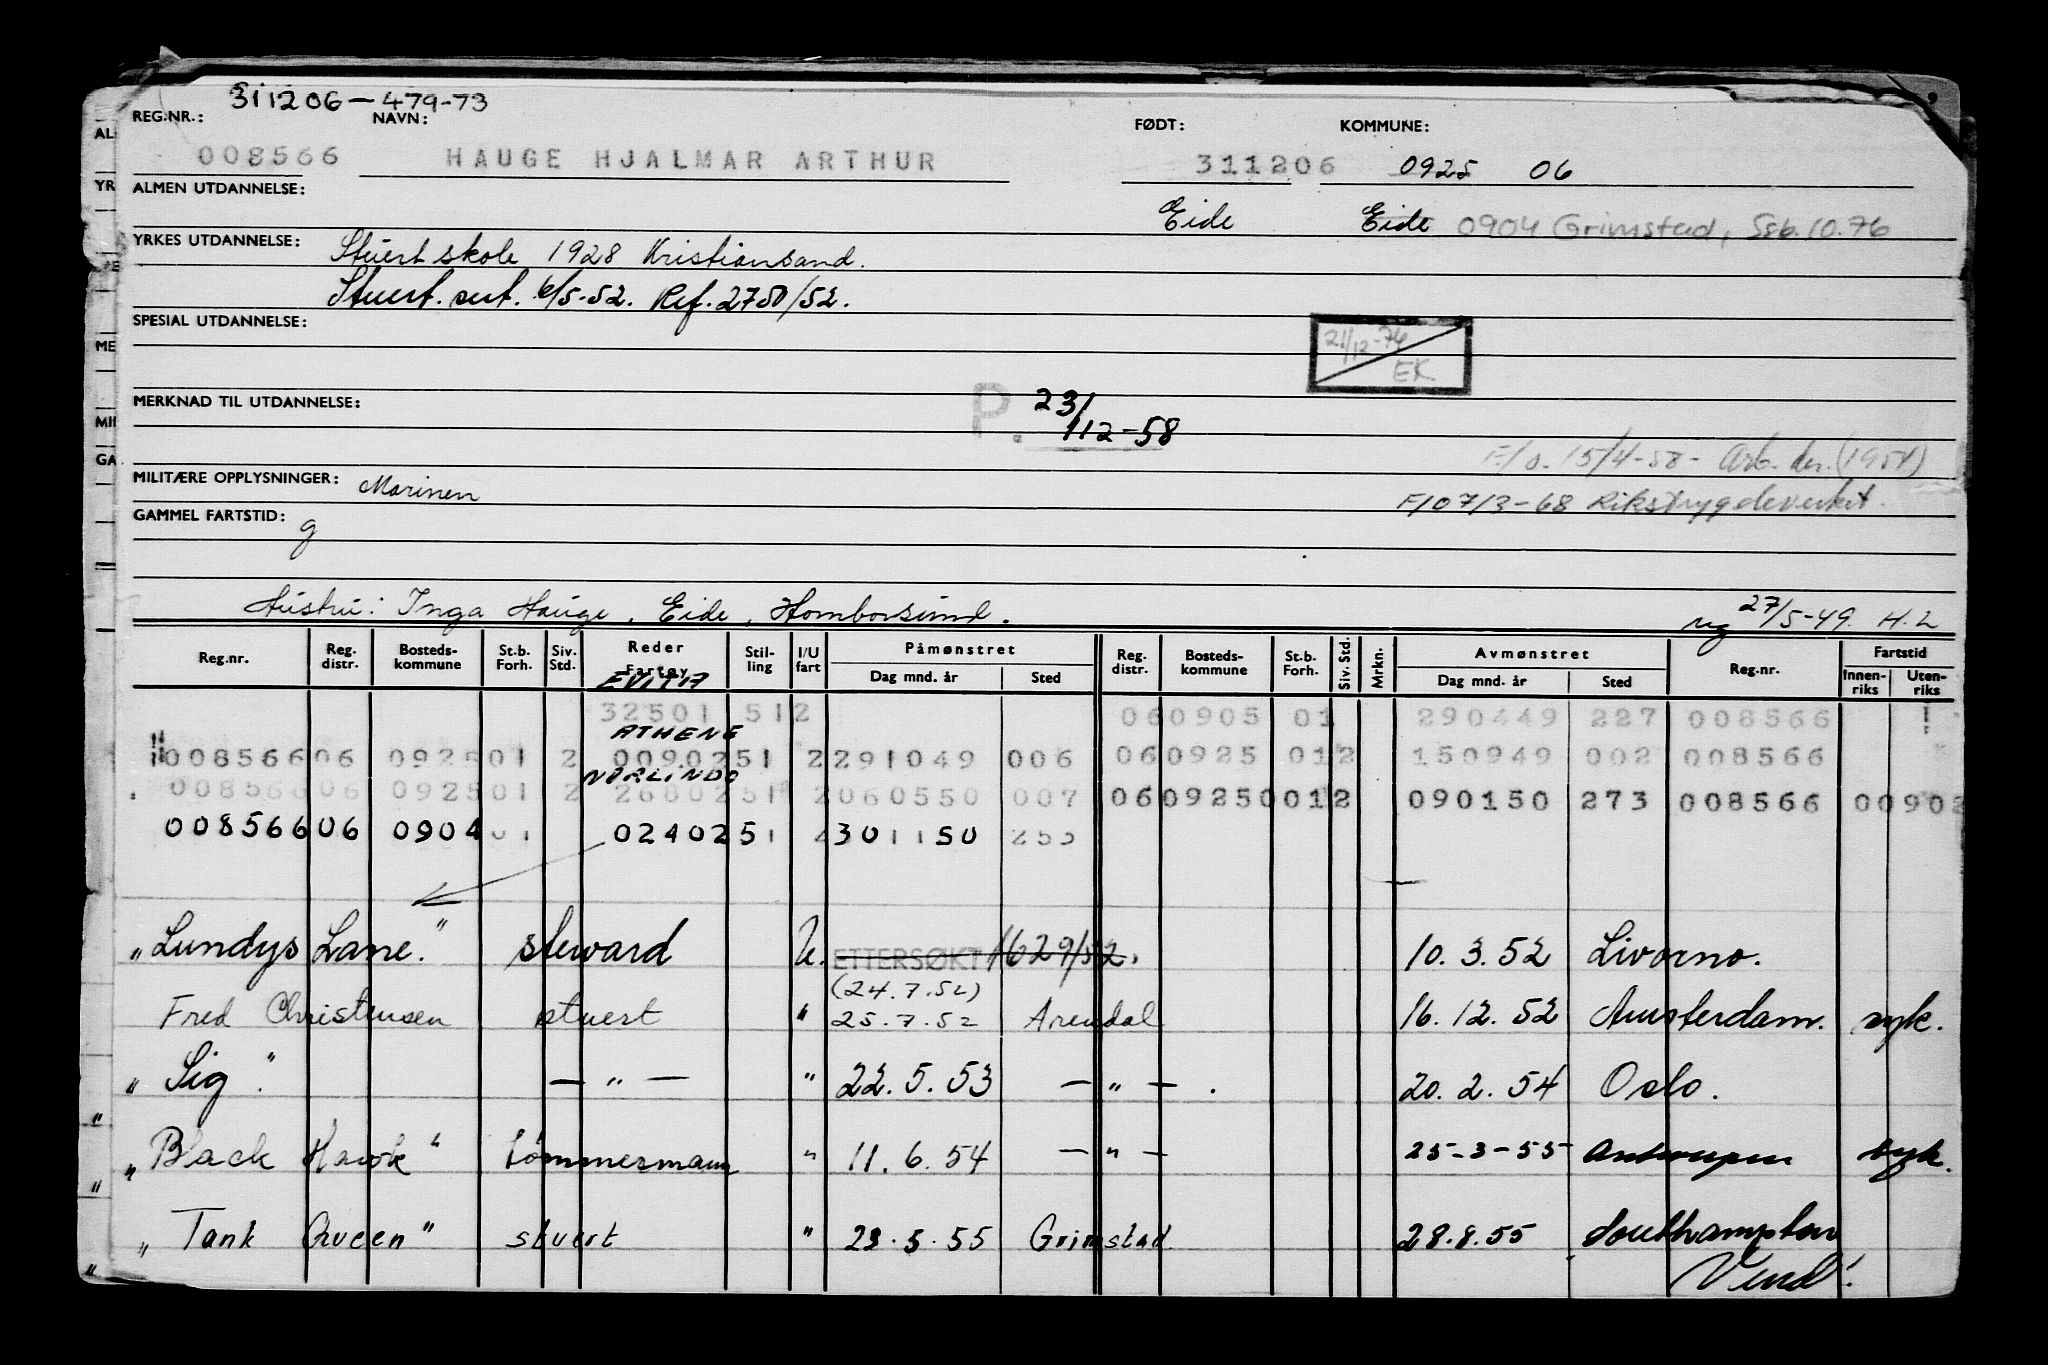 311206-479-73
REG.NR.: NAVN: FØDT: KOMMUNE:
008566 HAUGE HJALMAR ARTHUR 311206 0925 06
ALMEN UTDANNELSE:
Eide Eide 0904 Grimstad, Ssb. 10.76
YRKES UTDANNELSE: Stuertskole 1928 Kristiansand.
Stuert. sert. 6/5-52. Ref. 2750/52.
SPESIAL UTDANNELSE:
21/12-76 EK
MERKNAD TIL UTDANNELSE:
P. 23/12-58
F/o. 15/4-58 - Arb. der. (1951)
MILITÆRE OPPLYSNINGER: Marinen
F/o 7/3-68 Rikstrygdeverket.
GAMMEL FARTSTID: g
Hustru: Inga Hauge, Eide, Homborsund.
reg 27/5-49. H.L
Reg.nr. Reg. distr. Bosteds-kommune St.b. Forh. Siv. Std. Reder Fartøy Stil-ling I/U fart Påmønstret Dag mnd. år Sted Reg. distr. Bosteds-kommune St.b. Forh. Siv. Std. Mrkn. Avmønstret Dag mnd. år Sted Reg.nr. Fartstid Innen-riks Uten-riks
EVITA
32501 512 060905 01 290449 227 008566 !
ATHENE
!! 008566 06 0925 01 2 00902 51 2 291049 006 06 0925 01 2 150949 002 008566
NORLINDO
008566 06 0925 01 2 26802 51 2 060550 007 06 0925 0 01 2 090150 273 008566 00902
008566 06 0904 01 02402 51 2 301150 253
"Lundys Lane." steward U. ETTERSØKT 1629/52. 10.3.52 Livorno.
(24.7.52)
Fred Christensen stuert " 25.7.52 Arendal 16.12.52 Amsterdam. syk.
"Sig". — " — " 22.5.53 — " — . 20.2.54 Oslo.
"
"Black Hawk" tømmermann " 11.6.54 — " — 25-3-55 Antwerpen syk.
"
"Tank Queen" stuert " 23.5.55 Grimstad 28.8.55 Southampton
" Vend!